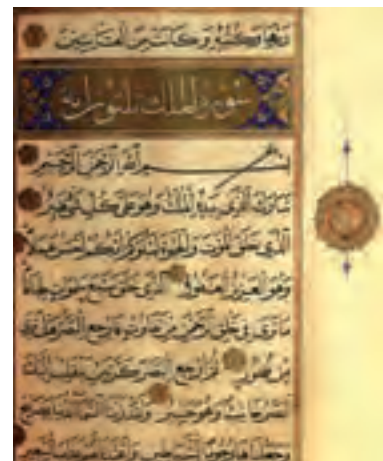 ربها وكتبه وكانت من القانتين
سورة الملك ثلثون اية
بسم الله الرحمن الرحيم
تبارك الذي بيده الملك وهو على كل شيء قدير
الذي خلق الموت والحيوة ليبلوكم ايكم احسن عملا
وهو العزيز الغفور الذي خلق سبع سموات طباقا
ما ترى في خلق الرحمن من تفاوت فارجع البصر هل ترى
من فطور ثم ارجع البصر كرتين ينقلب اليك
البصر خاسئا وهو حسير ولقد زينا السماء الدنيا بمصابيح
وجعلناها رجوما للشياطين واعتدنا لهم عذاب السعير